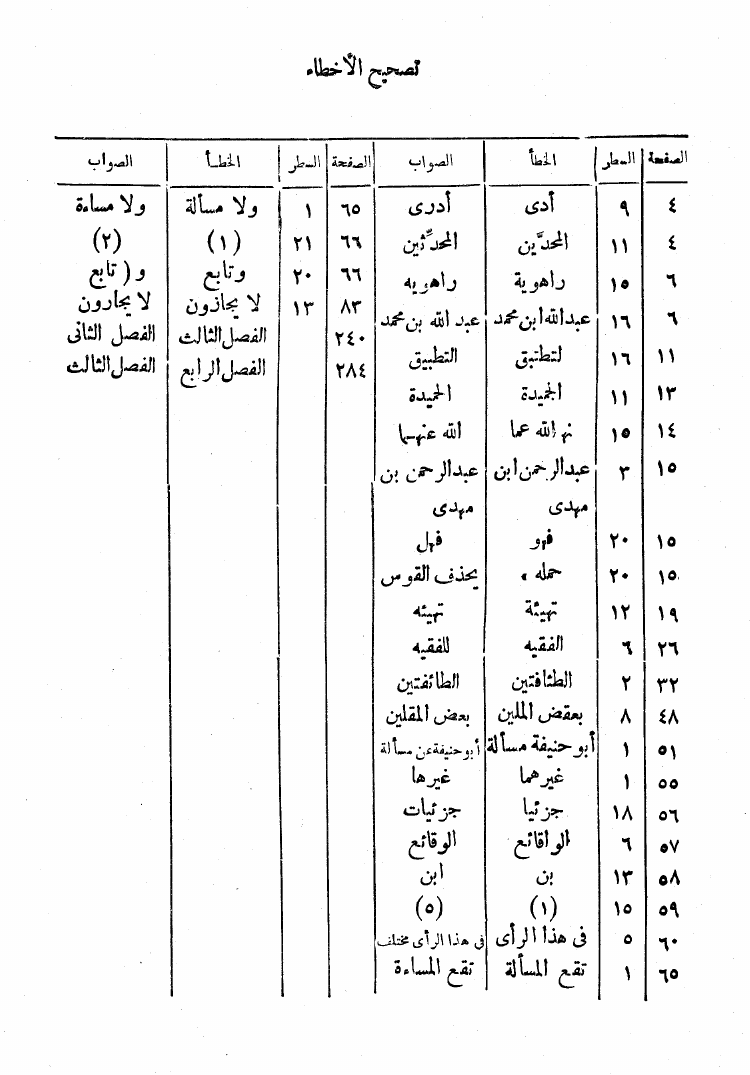 تصحيح الأخطاء
الصفحة السطر الخطأ الصواب
٤ ٩ أدى أدرى
٤ ١١ المحدَّين المحدِّثين
٦ ١٥ راهوية راهويه
٦ ١٦ عبدالله ابن محمد عبد الله بن محمد
١١ ١٦ لتطتبق التطبيق
١٣ ١١ الجميدة الحميدة
١٤ ١٥ نها لله عما الله عنهما
١٥ ٣ عبدالرحمن ابن عبدالرحمن بن
مهدى مهدى
١٥ ٢٠ فهو فهل
١٥ ٢٠ حمله ، يحذف القوس
١٩ ١٢ تهيئة تهيئه
٢٦ ٦ الفقيه للفقيه
٣٢ ٢ الطئافتين الطائفتين
٤٨ ٨ بعقض الملين بعض المقلين
٥١ ١ أبو حنيفة مسألة أبو حنيفة عن مسألة
٥٥ ١ غيرهما غيرها
٥٦ ١٨ جزئيا جزئيات
٥٧ ٦ الواقائع الوقائع
٥٨ ١٣ بن ابن
٥٩ ١٥ (١) (٥)
٦٠ ٥ فى هذا الرأى فى هذا الرأى مختلف
٦٥ ١ تقع المسألة تقع المساءة
الصفحة السطر الخطأ الصواب
٦٥ ١ ولا مسألة ولا مساءة
٦٦ ٢١ (١) (٢)
٦٦ ٢٠ وتابع و ( تابع
٨٣ ١٣ لا يجازون لا يجارون
٢٤٠ الفصل الثالث الفصل الثانى
٢٨٤ الفصل الرابع الفصل الثالث